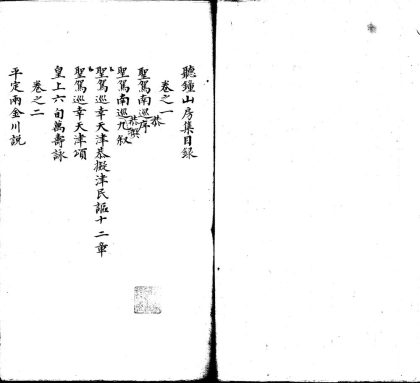 聽鐘山房集目錄
卷之一
聖駕南巡恭序
聖駕南巡恭擬九敘
聖駕巡幸天津恭擬津民謳十二章
聖駕巡幸天津頌
皇上六旬萬壽詠
卷之二
平定兩金川說